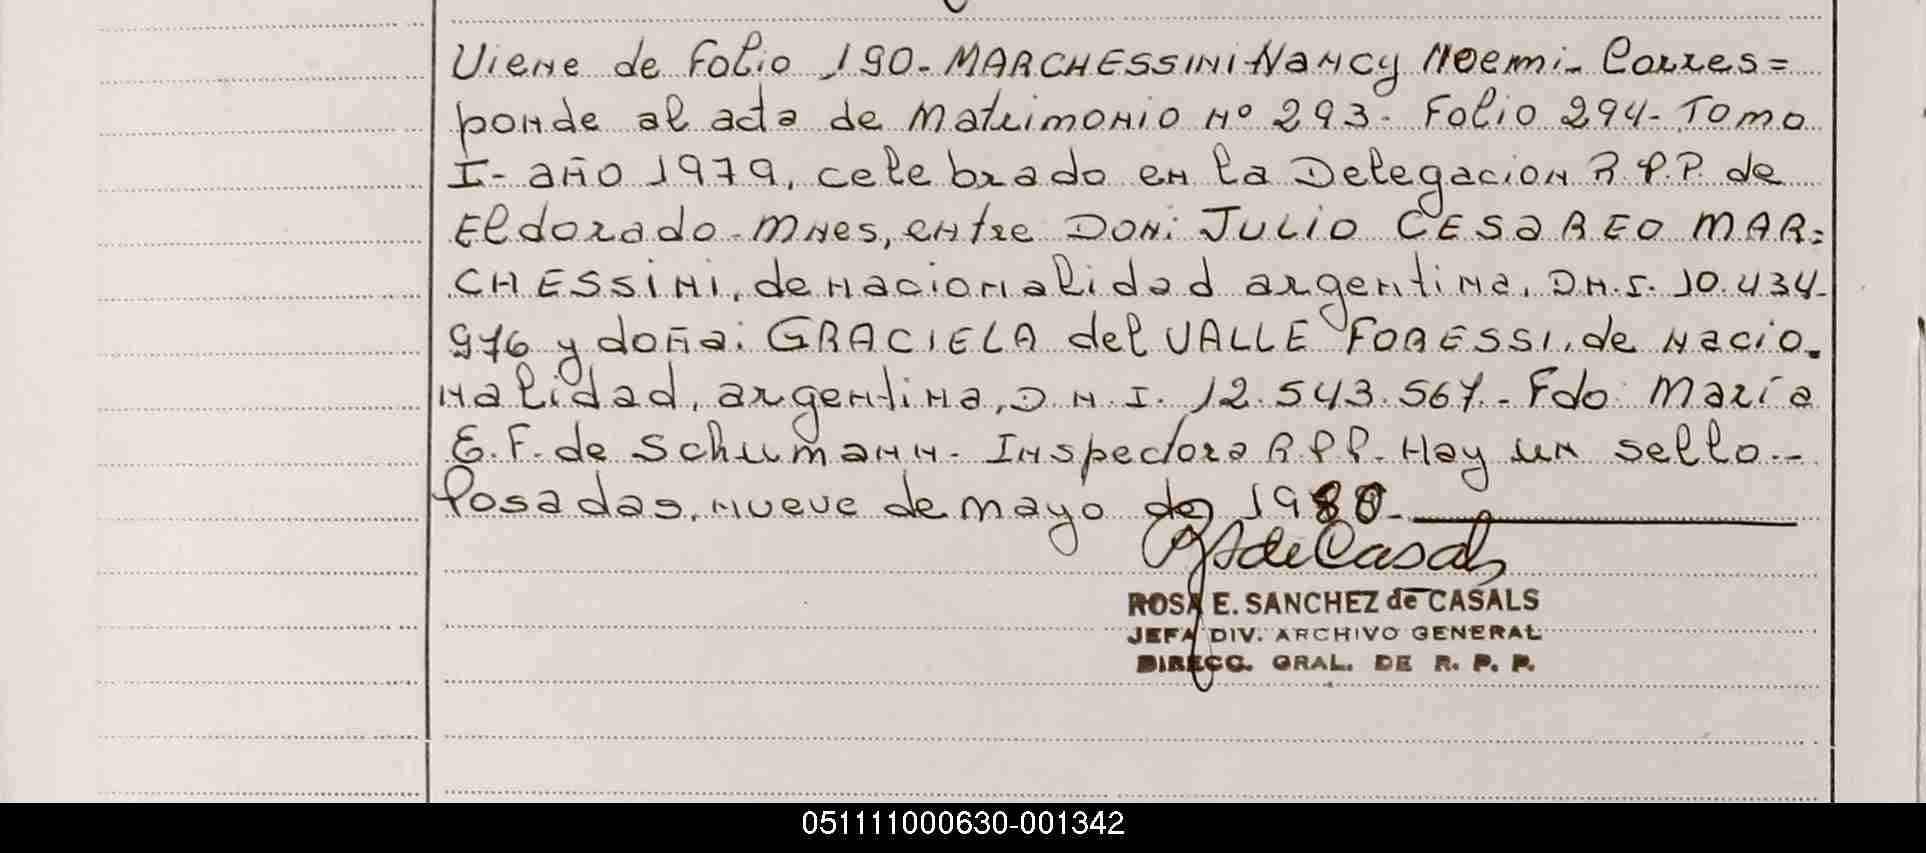 Viene de Folio 190- MARCHESSINI Nancy Noemi- Corres=
ponde al acta de Matrimonio nº 293- Folio 294- Tomo
I- año 1979, celebrado en la Delegacion R.P.P. de
Eldorado- Mnes, entre DON: JULIO CESAREO MAR=
CHESSINI, de nacionalidad argentina, D.N.I. 10.434-
976 y doña: GRACIELA del VALLE FORESSI, de nacio-
nalidad, argentina, D.N.I. 12.543.567.- Fdo: María
E. F. de Schumann- Inspectora R.P.P- Hay un sello.-
Posadas, nueve de mayo de 1980-
ROSA E. SANCHEZ de CASALS
JEFA DIV. ARCHIVO GENERAL
DIRECC. GRAL. DE R. P. P.
051111000630-001342